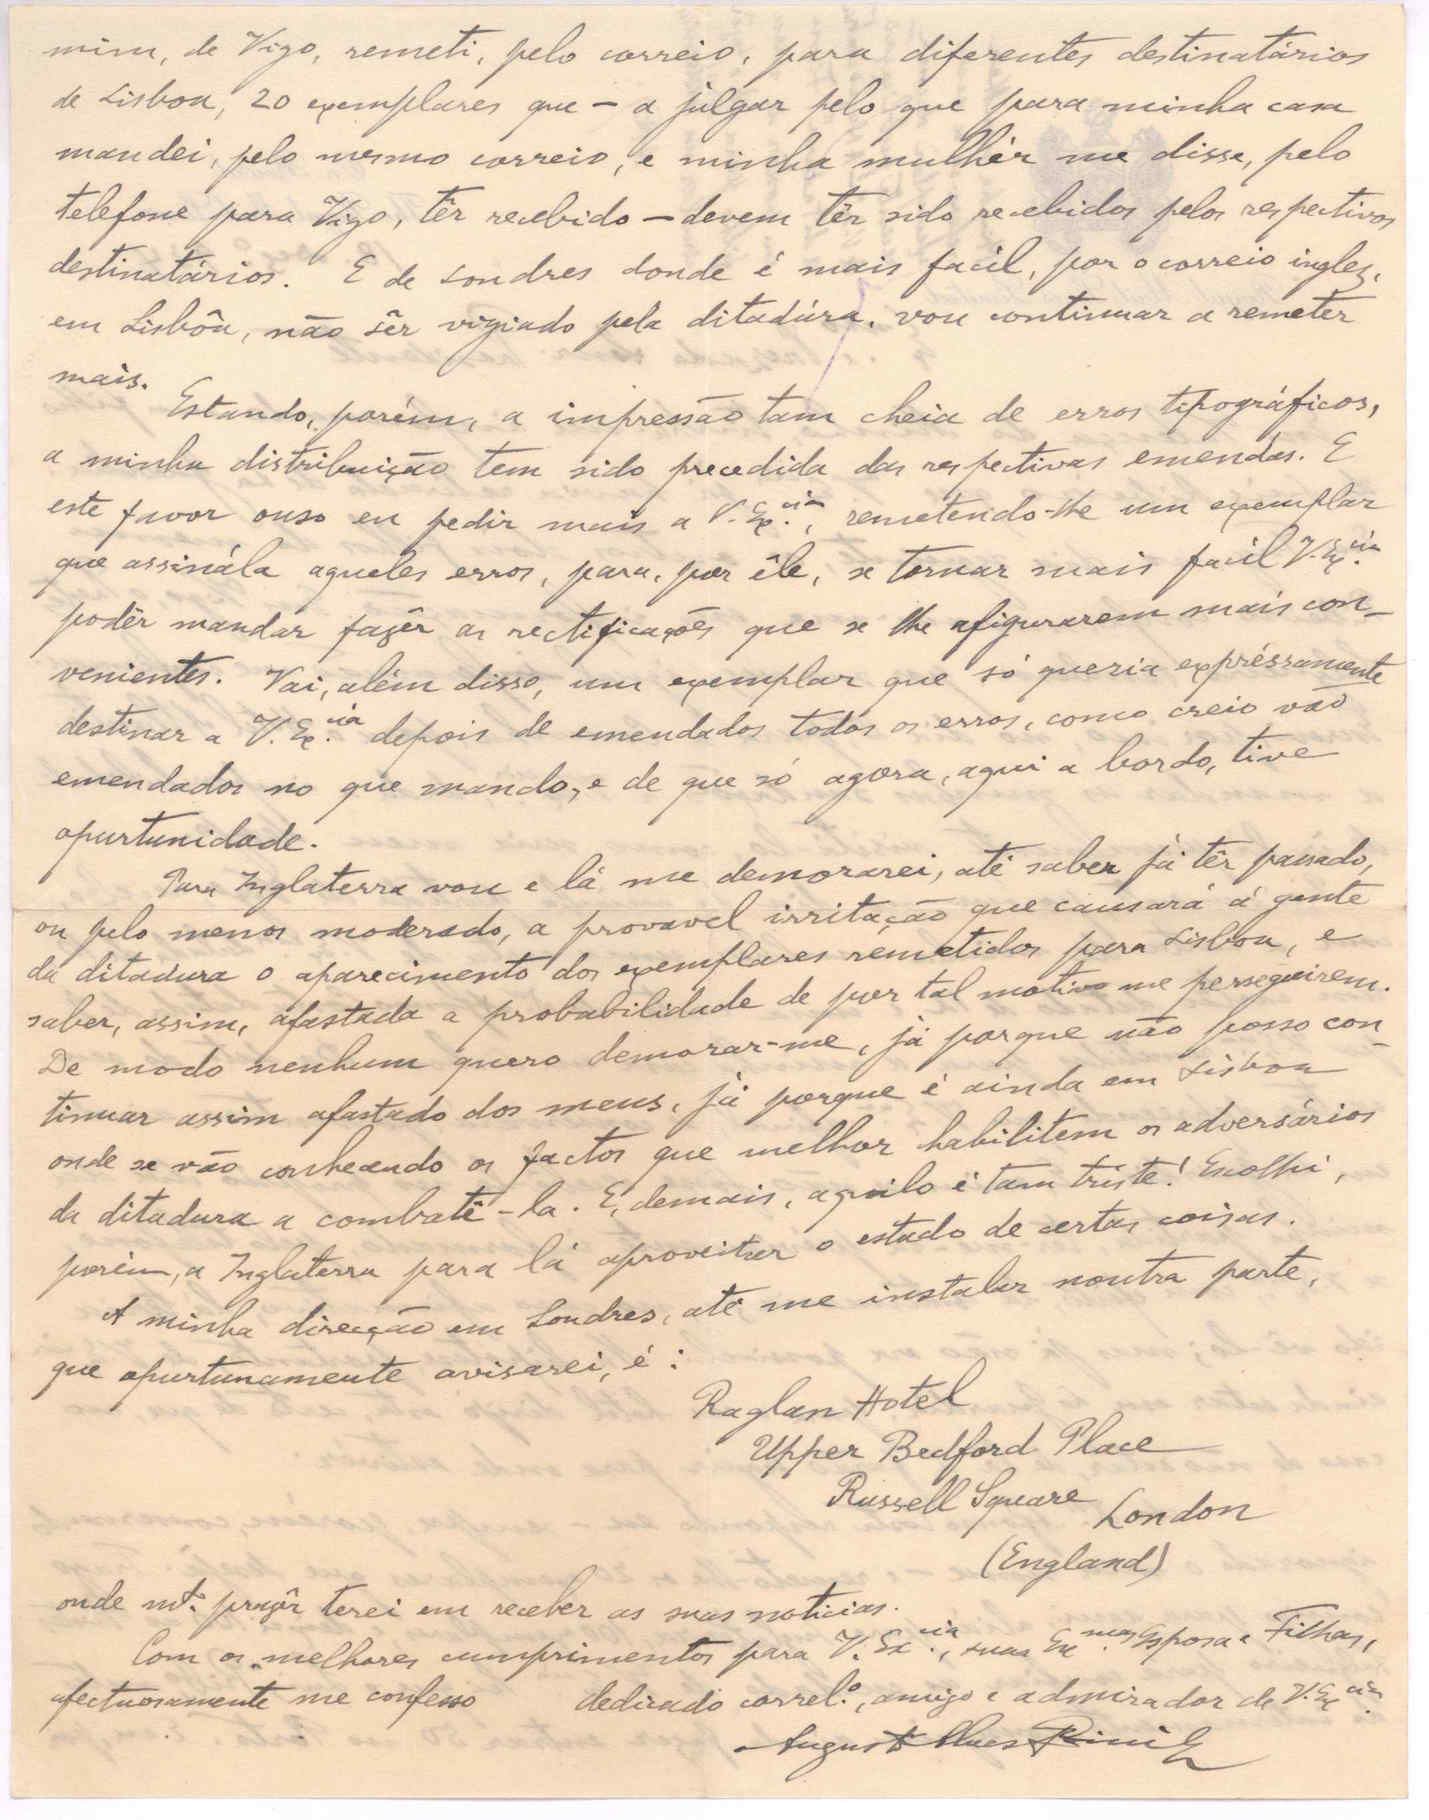 mim, de Vigo, remeti, pelo correio, para diferentes destinatários
de Lisboa, 20 exemplares que – a julgar pelo que para minha casa
mandei, pelo mesmo correio, e minha mulhér me disse, pelo
telefone para Vigo, têr recebido – devem têr sido recebidos pelos respectivos
destinatários. E de Londres donde é mais facil, por o correio inglez,
em Lisbôa, não sêr vigiado pela ditadúra, vou continuar a remetêr
mais.
Estando, porém, a impressão tam cheia de erros tipográficos,
a minha distribuição tem sido precedida das respectivas emendas. E
este favor ouso eu pedir mais a V. Ex.cia, remetendo-lhe um exemplar
que assinála aqueles erros, para, por êle, se tornar mais facil V. Ex.cia
podêr mandar fazêr as rectificações que se lhe afigurarem mais con-
venientes. Vai, além disso, um exemplar que só queria expréssamente
destinar a V. Ex.cia depois de emendados todos os erros, como creio vão
emendados no que mando, e de que só agora, aqui a bordo, tive
opurtunidade.
Para Inglaterra vou e lá me demorarei, até saber já têr passado,
ou pelo menos moderado, a provavel irritação que causará á gente
da ditadura o aparecimento dos exemplares remetidos para Lisboa, e
saber, assim, afastada a probabilidade de por tal motivo me perseguirem.
De modo nenhum quero demorar-me, já porque não posso con-
tinuar assim afastado dos meus, já porque é ainda em Lisboa
onde se vão conhecendo os factos que melhor habilitem os adversários
da ditadura a combatê-la. E, demais, aquilo é tam triste! Escolhi,
porém, a Inglaterra para lá aproveitar o estudo de certas coisas.
A minha direcção em Londres, até me instalar noutra parte,
que opurtunamente avisarei, é:
Raglan Hotel
Upper Bedford Place
Russell Square
London
(England)
onde mt.º prazêr terei em receber as suas noticias.
Com os melhores cumprimentos para V. Ex.cia, suas Ex.mas Esposa e Filhas,
afectuosamente me confesso dedicado correl.º, amigo e admirador de V. Ex.cia
Augusto Alves